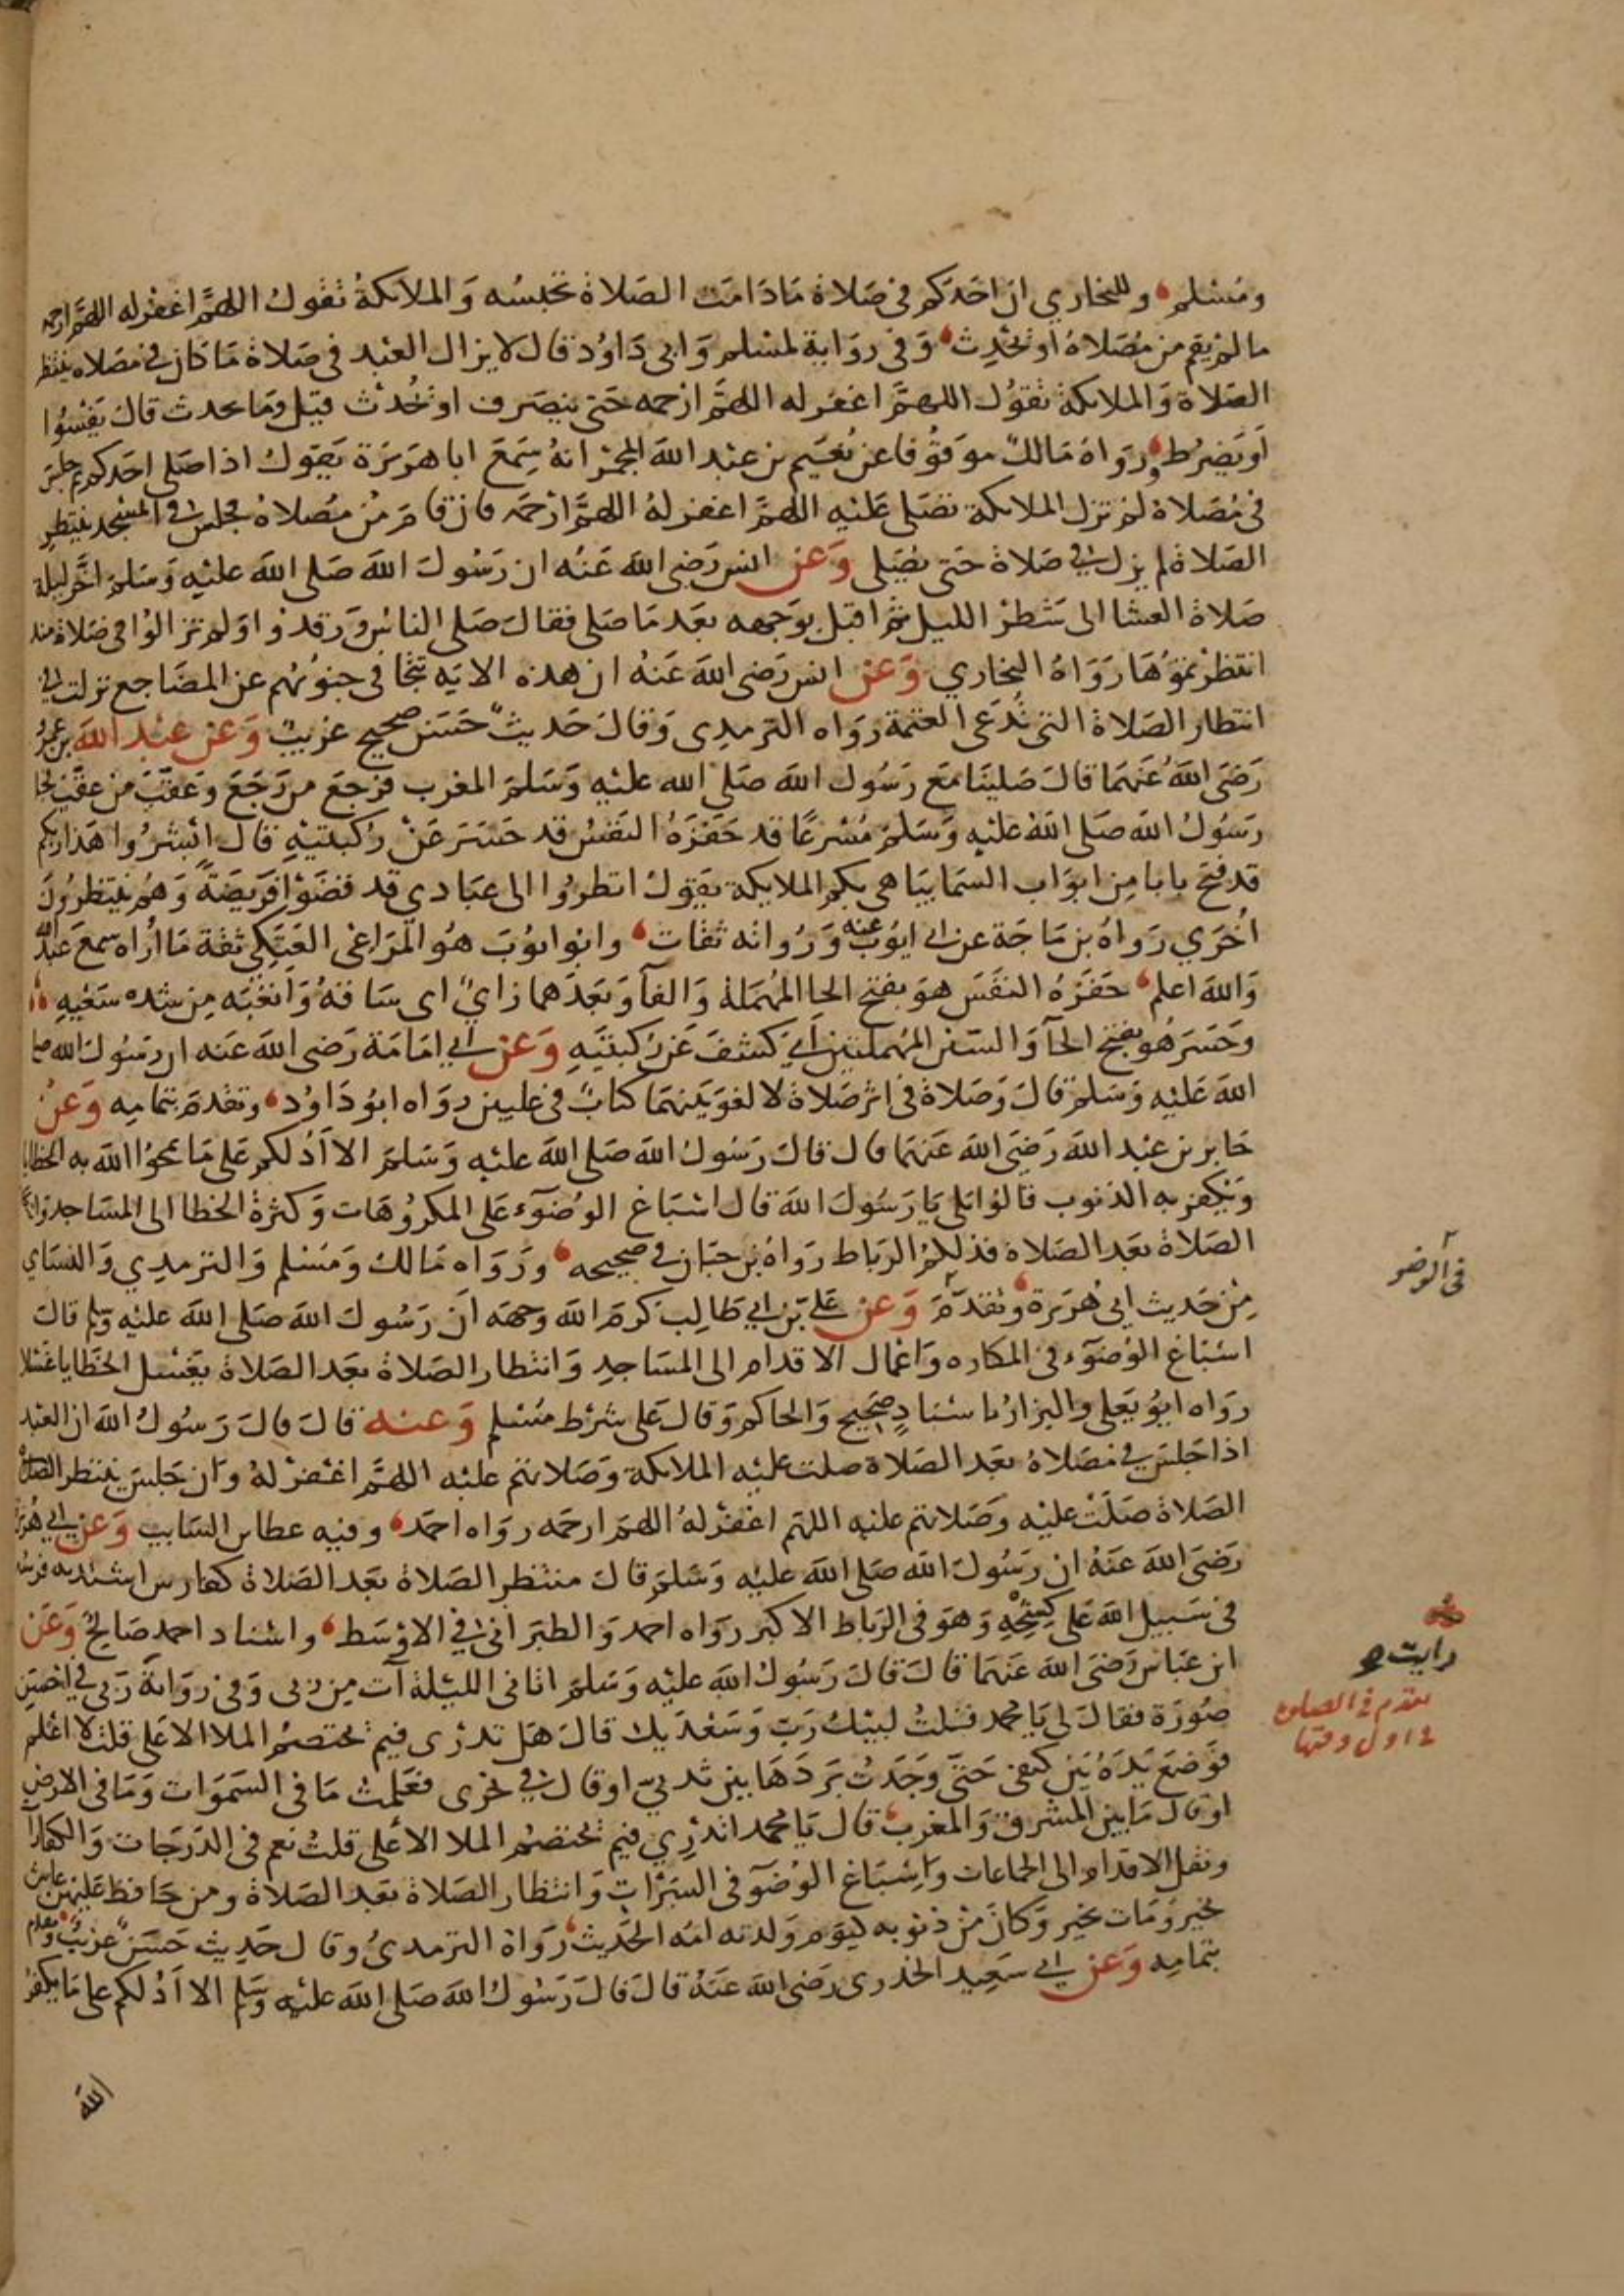 ومسلم وللبخاري ان احدكم في صلاة مادامت الصلاة تحبسه والملايكة تقول اللهم اغفر له اللهم ارحمه
مالم يقم من مصلاه او يحدث وفي رواية لمسلم وابي داود قال لا يزال العبد في صلاة ما كان في مصلاه ينتظر
الصلاة والملايكة تقول اللهم اغفر له اللهم ارحمه حتى ينصرف او يحدث قيل وما يحدث قال يفسوا
او يضرط ورواه مالك موقوفا عن نعيم بن عبد الله المجمر انه سمع ابا هريرة يقول اذا صلى احدكم ثم جلس
في مصلاة لم تزل الملايكة تصلي عليه اللهم اغفر له اللهم ارحمه فان قام من مصلاه فجلس في المسجد ينتظر
الصلاة لم يزل في صلاة حتى يصلي وعن انس رضي الله عنه ان رسول الله صلى الله عليه وسلم اخر ليلة
صلاة العشا الى شطر الليل ثم اقبل بوجهه بعد ما صلى فقال صلى الناس ورقدوا ولم تزالوا في صلاة منذ
انتظرتموها رواه البخاري وعن انس رضي الله عنه ان هذه الاية تتجافى جنوبهم عن المضاجع نزلت في
انتظار الصلاة التي تدعى العتمة رواه الترمدي وقال حديث حسن صحيح غريب وعن عبد الله بن عمرو
رضي الله عنهما قال صلينا مع رسول الله صلى الله عليه وسلم المغرب فرجع من رجع وعقب من عقب فجا
رسول الله صلى الله عليه وسلم مسرعا قد حفزه النفس قد حسر عن ركبتيه قال ابشروا هذا ربكم
قد فتح بابا من ابواب السما يباهي بكم الملايكة يقول انظروا الى عبادي قد قضوا فريضة وهم ينتظرون
اخري رواه بن ماجة عن ابي ايوب عنه ورواته ثقات وابو ايوب هو المراغي العتكي ثقة ما اراه سمع عبد الله
والله اعلم حفزه النفس هو بفتح الحا المهملة والفا وبعدهما زاي اي ساقه واتعبه من شده سعيه
وحسر هو بفتح الحا والسين المهملتين اي كشف عن ركبتيه وعن ابي امامة رضي الله عنه ان رسول الله صلى
الله عليه وسلم قال وصلاة في اثر صلاة لا لغو بينهما كتاب في عليين رواه ابو داود وتقدم بتمامه وعن
جابر بن عبد الله رضي الله عنهما قال قال رسول الله صلى الله عليه وسلم الا ادلكم على ما يمحوا الله به الخطايا
ويكفر به الذنوب قالوا بلى يا رسول الله قال اسباغ الوضوء على المكروهات وكثرة الخطا الى المساجد وانتظار
الصلاة بعد الصلاة فذلكم الرباط رواه بن حبان في صحيحه ورواه مالك ومسلم والترمدي والنساي
من حديث ابي هريرة وتقدم وعن علي بن ابي طالب كرم الله وجهه ان رسول الله صلى الله عليه وسلم قال
اسباغ الوضوء في المكاره واعمال الاقدام الى المساجد وانتظار الصلاة بعد الصلاة يغسل الخطايا غسلا
رواه ابو يعلى والبزار باسناد صحيح والحاكم وقال على شرط مسلم وعنه قال قال رسول الله ان العبد
اذا جلس في مصلاه بعد الصلاة صلت عليه الملايكة وصلاتهم عليه اللهم اغفر له وان جلس ينتظر الصلاة
الصلاة صلت عليه وصلاتهم عليه اللهم اغفر له اللهم ارحمه رواه احمد وفيه عطا بن السايب وعن ابي هريرة
رضي الله عنه ان رسول الله صلى الله عليه وسلم قال منتظر الصلاة بعد الصلاة كفارس اشتد به فرسه
في سبيل الله على كشحه وهو في الرباط الاكبر رواه احمد والطبراني في الاوسط واسناد احمد صالح وعن
ابن عباس رضي الله عنهما قال قال رسول الله عليه وسلم اتاني الليلة آت من ربي وفي رواية ربي في احسن
صورة فقال لي يا محمد فقلت لبيك رب وسعديك قال هل تدري فيم يختصم الملا الاعلى قلت لا اعلم
فوضع يده بين كتفي حتى وجدت بردها بين ثديي او قال في نحري فعلمت ما في السموات وما في الارض
او قال ما بين المشرق والمغرب قال يا محمد اتدري فيم يختصم الملا الاعلى قلت نعم في الدرجات والكفارات
ونقل الاقدام الى الجماعات واسباغ الوضو في السبرات وانتظار الصلاة بعد الصلاة ومن حافظ عليهن عاش
بخير ومات بخير وكان من ذنوبه كيوم ولدته امه الحديث رواه الترمدي وقال حديث حسن غريب وتقدم
بتمامه وعن ابي سعيد الخدري رضي الله عنه قال قال رسول الله صلى الله عليه وسلم الا ادلكم على ما يكفر
الله
في الوضو
رايت
تقدم في الصلوه
في اول وقتها